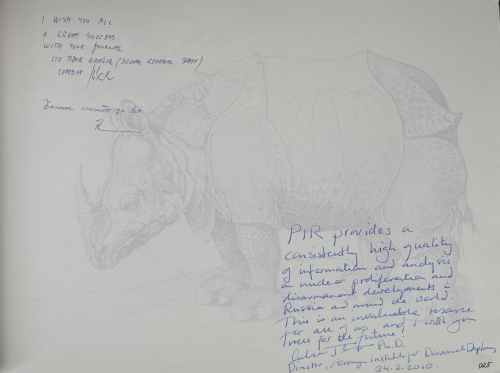 I WISH YOU ALL
A GREAT SUCCESS
WITH YOUR JOURNAL
Большое спасибо за всё
PIR provides a
consistently high quality
of information and analysis
on nuclear proliferation and
disarmament developments in
Russia and around the world.
This is an invaluable resource
for all of us and I wish you
success for the future!
Ph.D.
Director, Acronym Institute for Disarmament Diplomacy
24.2.2010